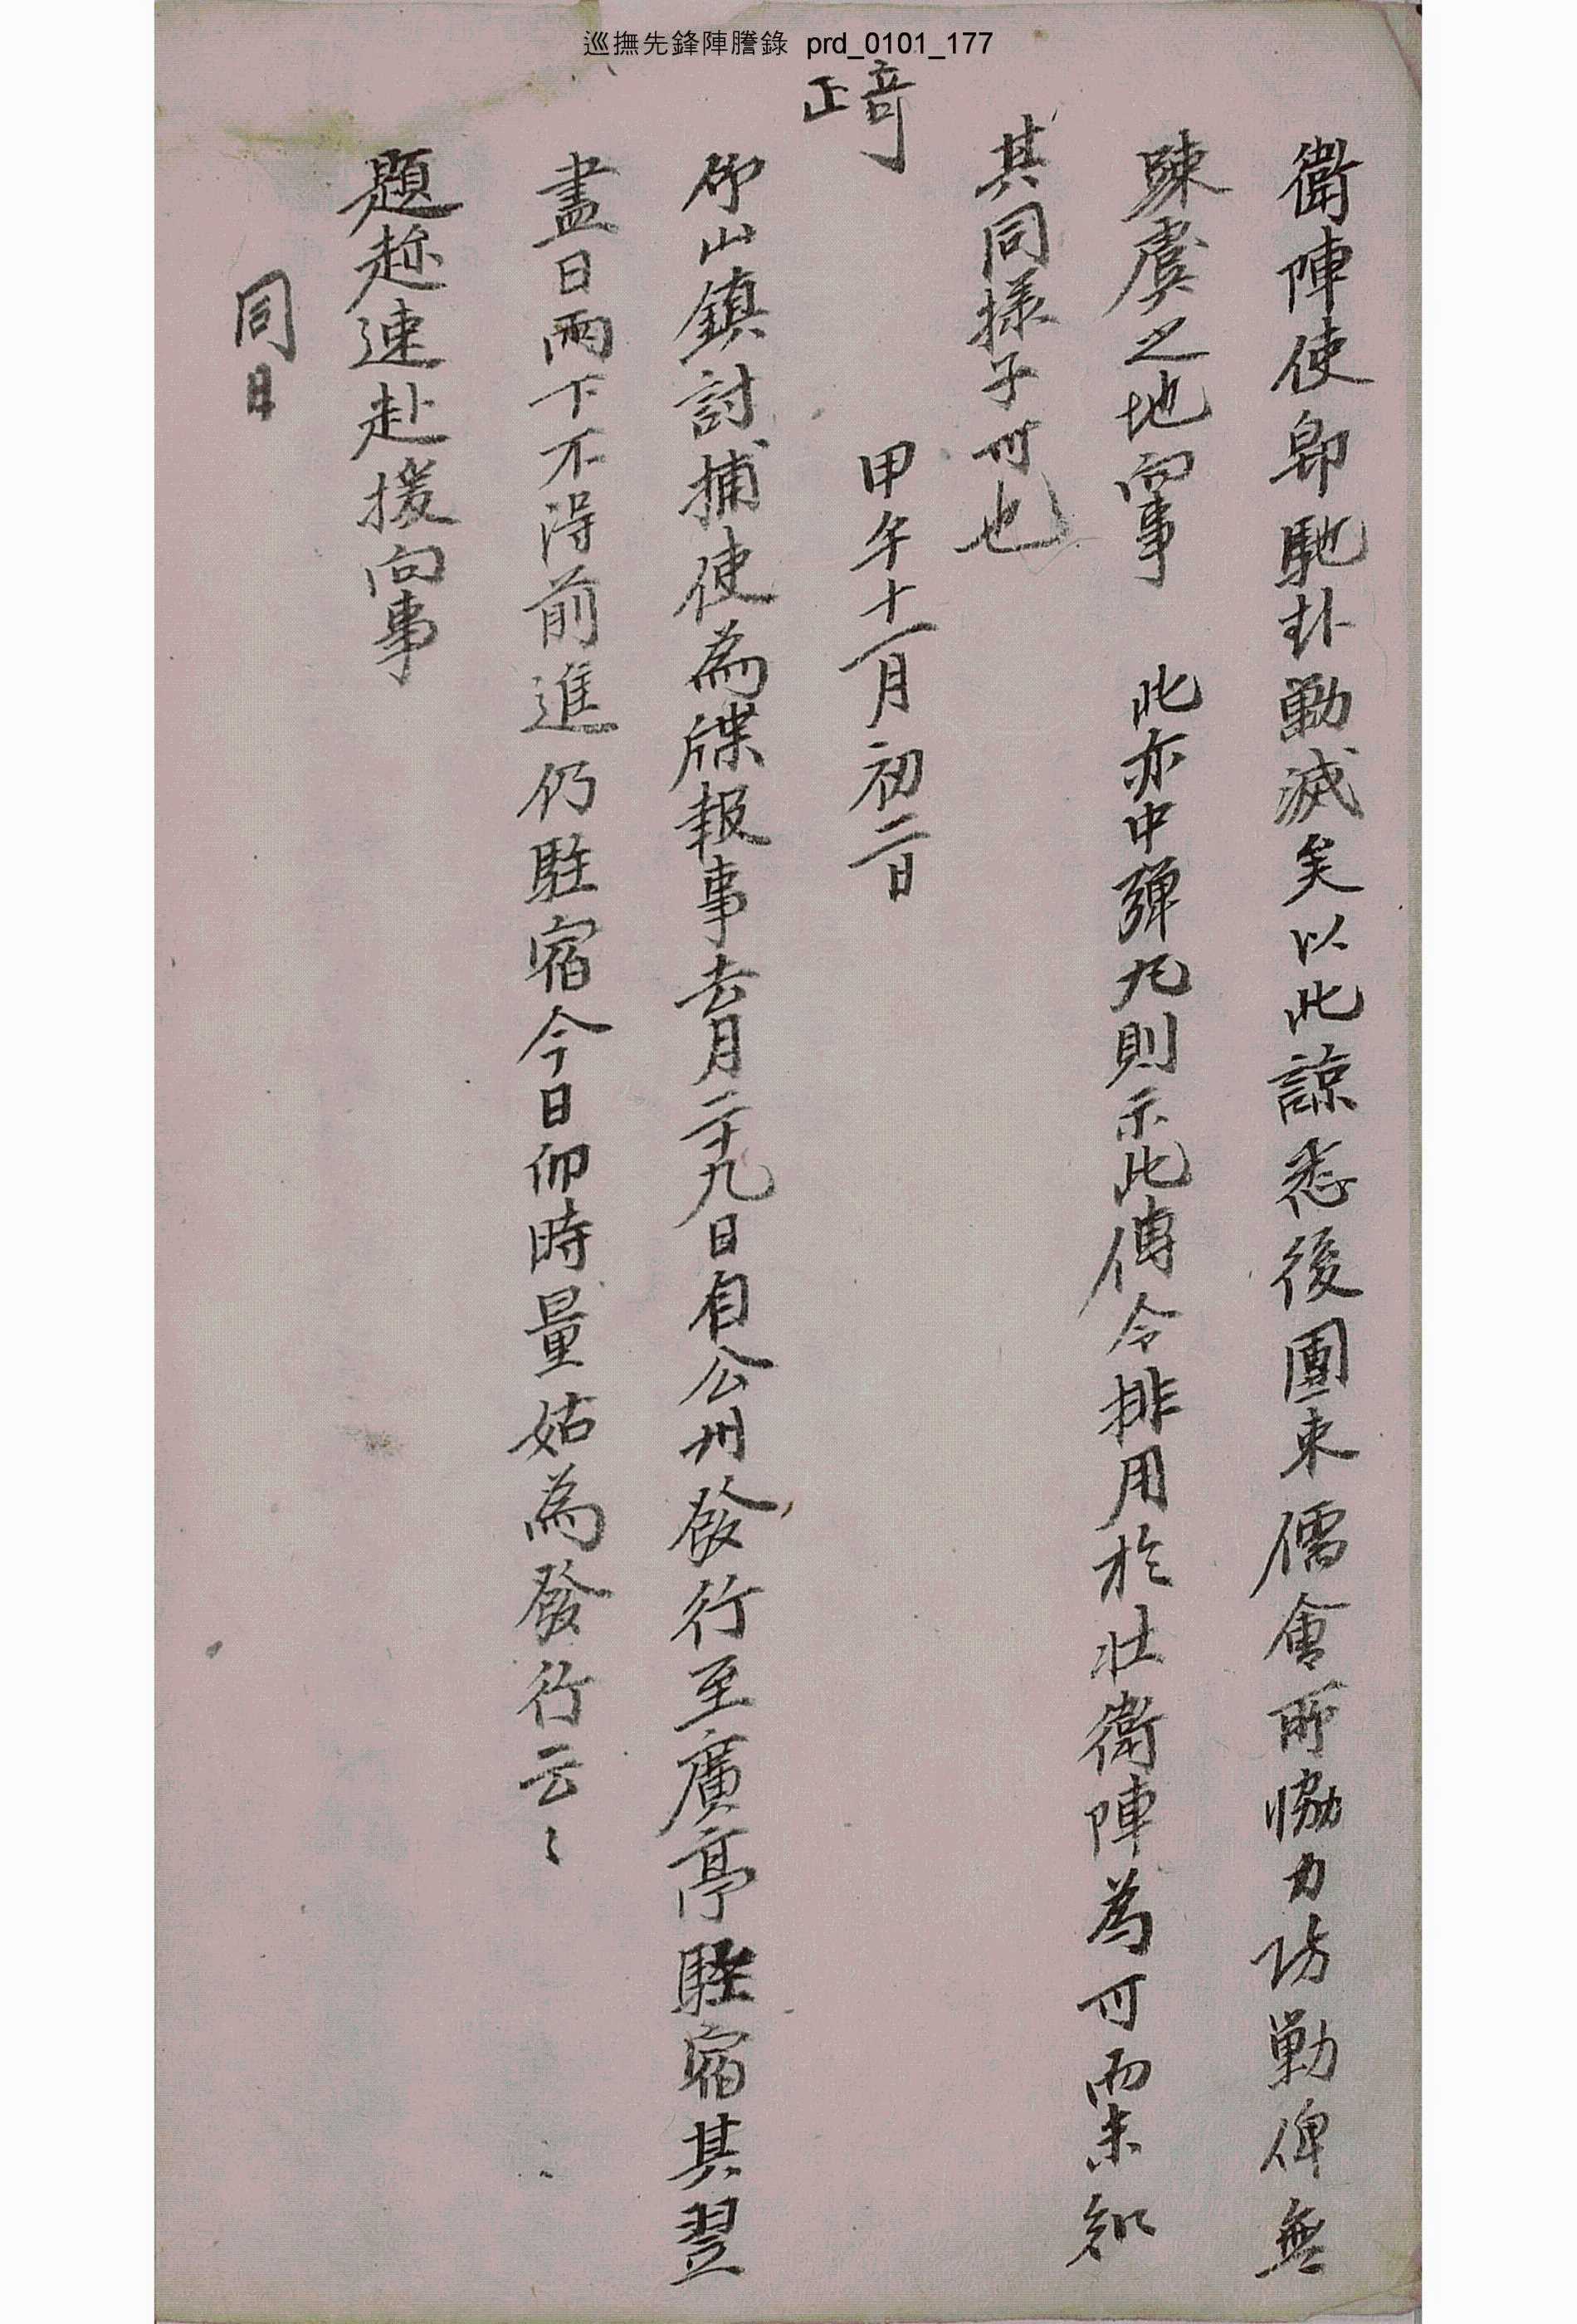 巡撫先鋒陣謄錄 prd_0101_177
衛陣使卽馳赴勦滅矣以此諒悉後團束儒會所協力防勦俾無
踈虞之地向事 此亦中彈丸則示此傳令排用於壯衛陣爲可而未知
其同樣子可也
甲午十一月初二日
竹山鎭討捕使爲牒報事去月二十九日自公州發行至廣亭駐宿其翌
盡日雨下不得前進仍駐宿今日卯時量姑爲發行云〻
題趂速赴援向事
同日